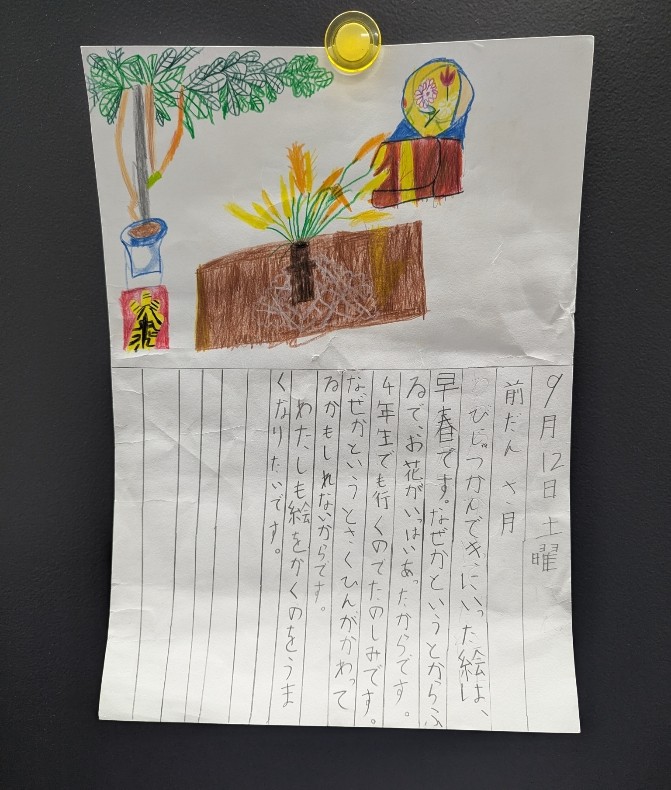 9月12日土曜
前だん さ月
びじゅつかんできにいった絵は、
早春です。なぜかというとからふ
るで、お花がいっぱいあったからです。
4年生でも行くのでたのしみです。
なぜかというとさくひんがかわって
るかもしれないからです。
わたしも絵をかくのをうま
くなりたいです。